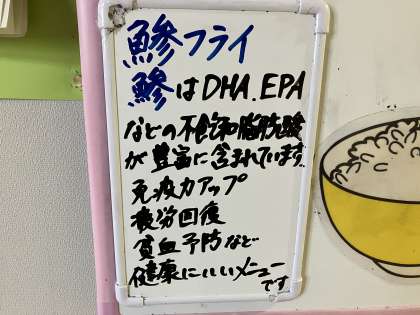 鯵フライ
鯵はDHA.EPA
などの不飽和脂肪酸
が豊富に含まれています
免疫力アップ
疲労回復
貧血予防など
健康にいいメニュー
です